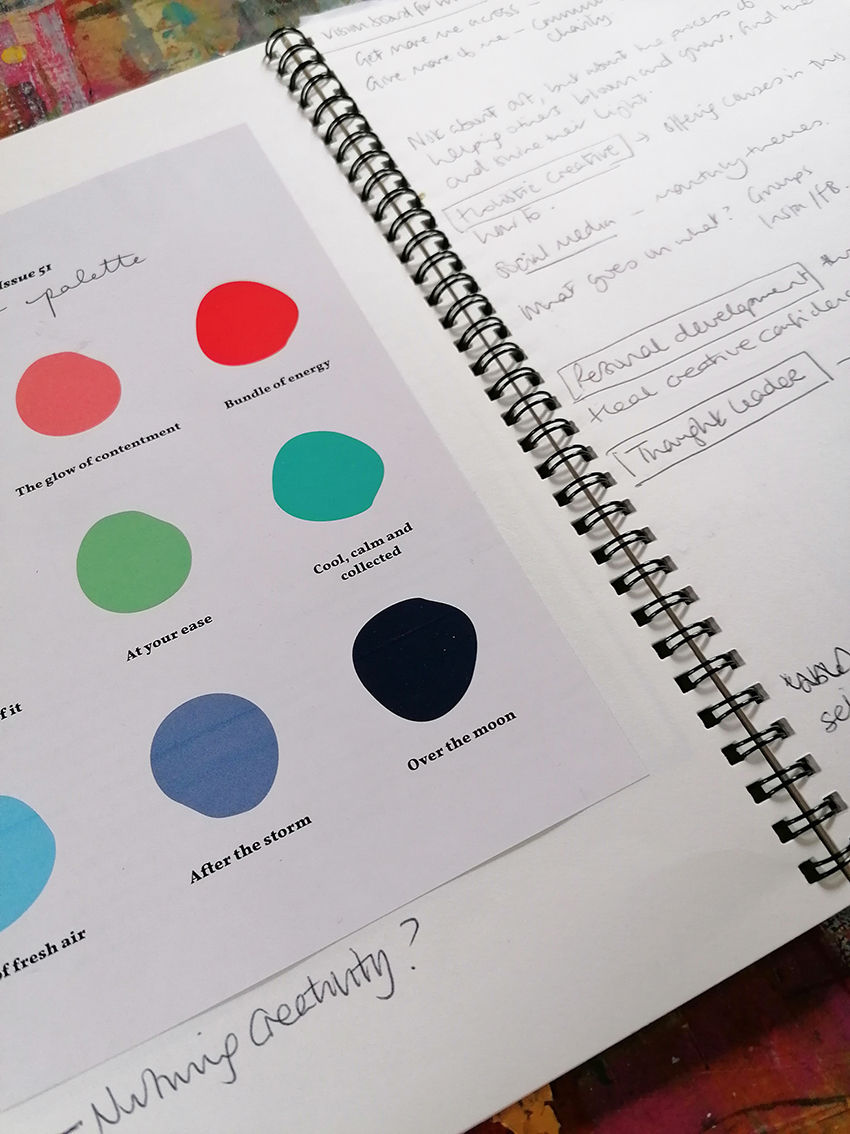 Issue 51
- palette
Bundle of energy
The glow of contentment
Cool, calm and
collected
At your ease
Over the moon
f it
After the storm
of fresh air
- Nuturing creativity?
Vision board for
Get more me across -
Give more of me -
charity
Not about art, but about the process of
helping others bloom and grow, find the
and shine their light.
Holistic creative → offering courses in this
how to.
Social media - monthly themes.
What goes on what? Groups
Insta/FB.
Personal development
Heal creative confidence
Thought leader -